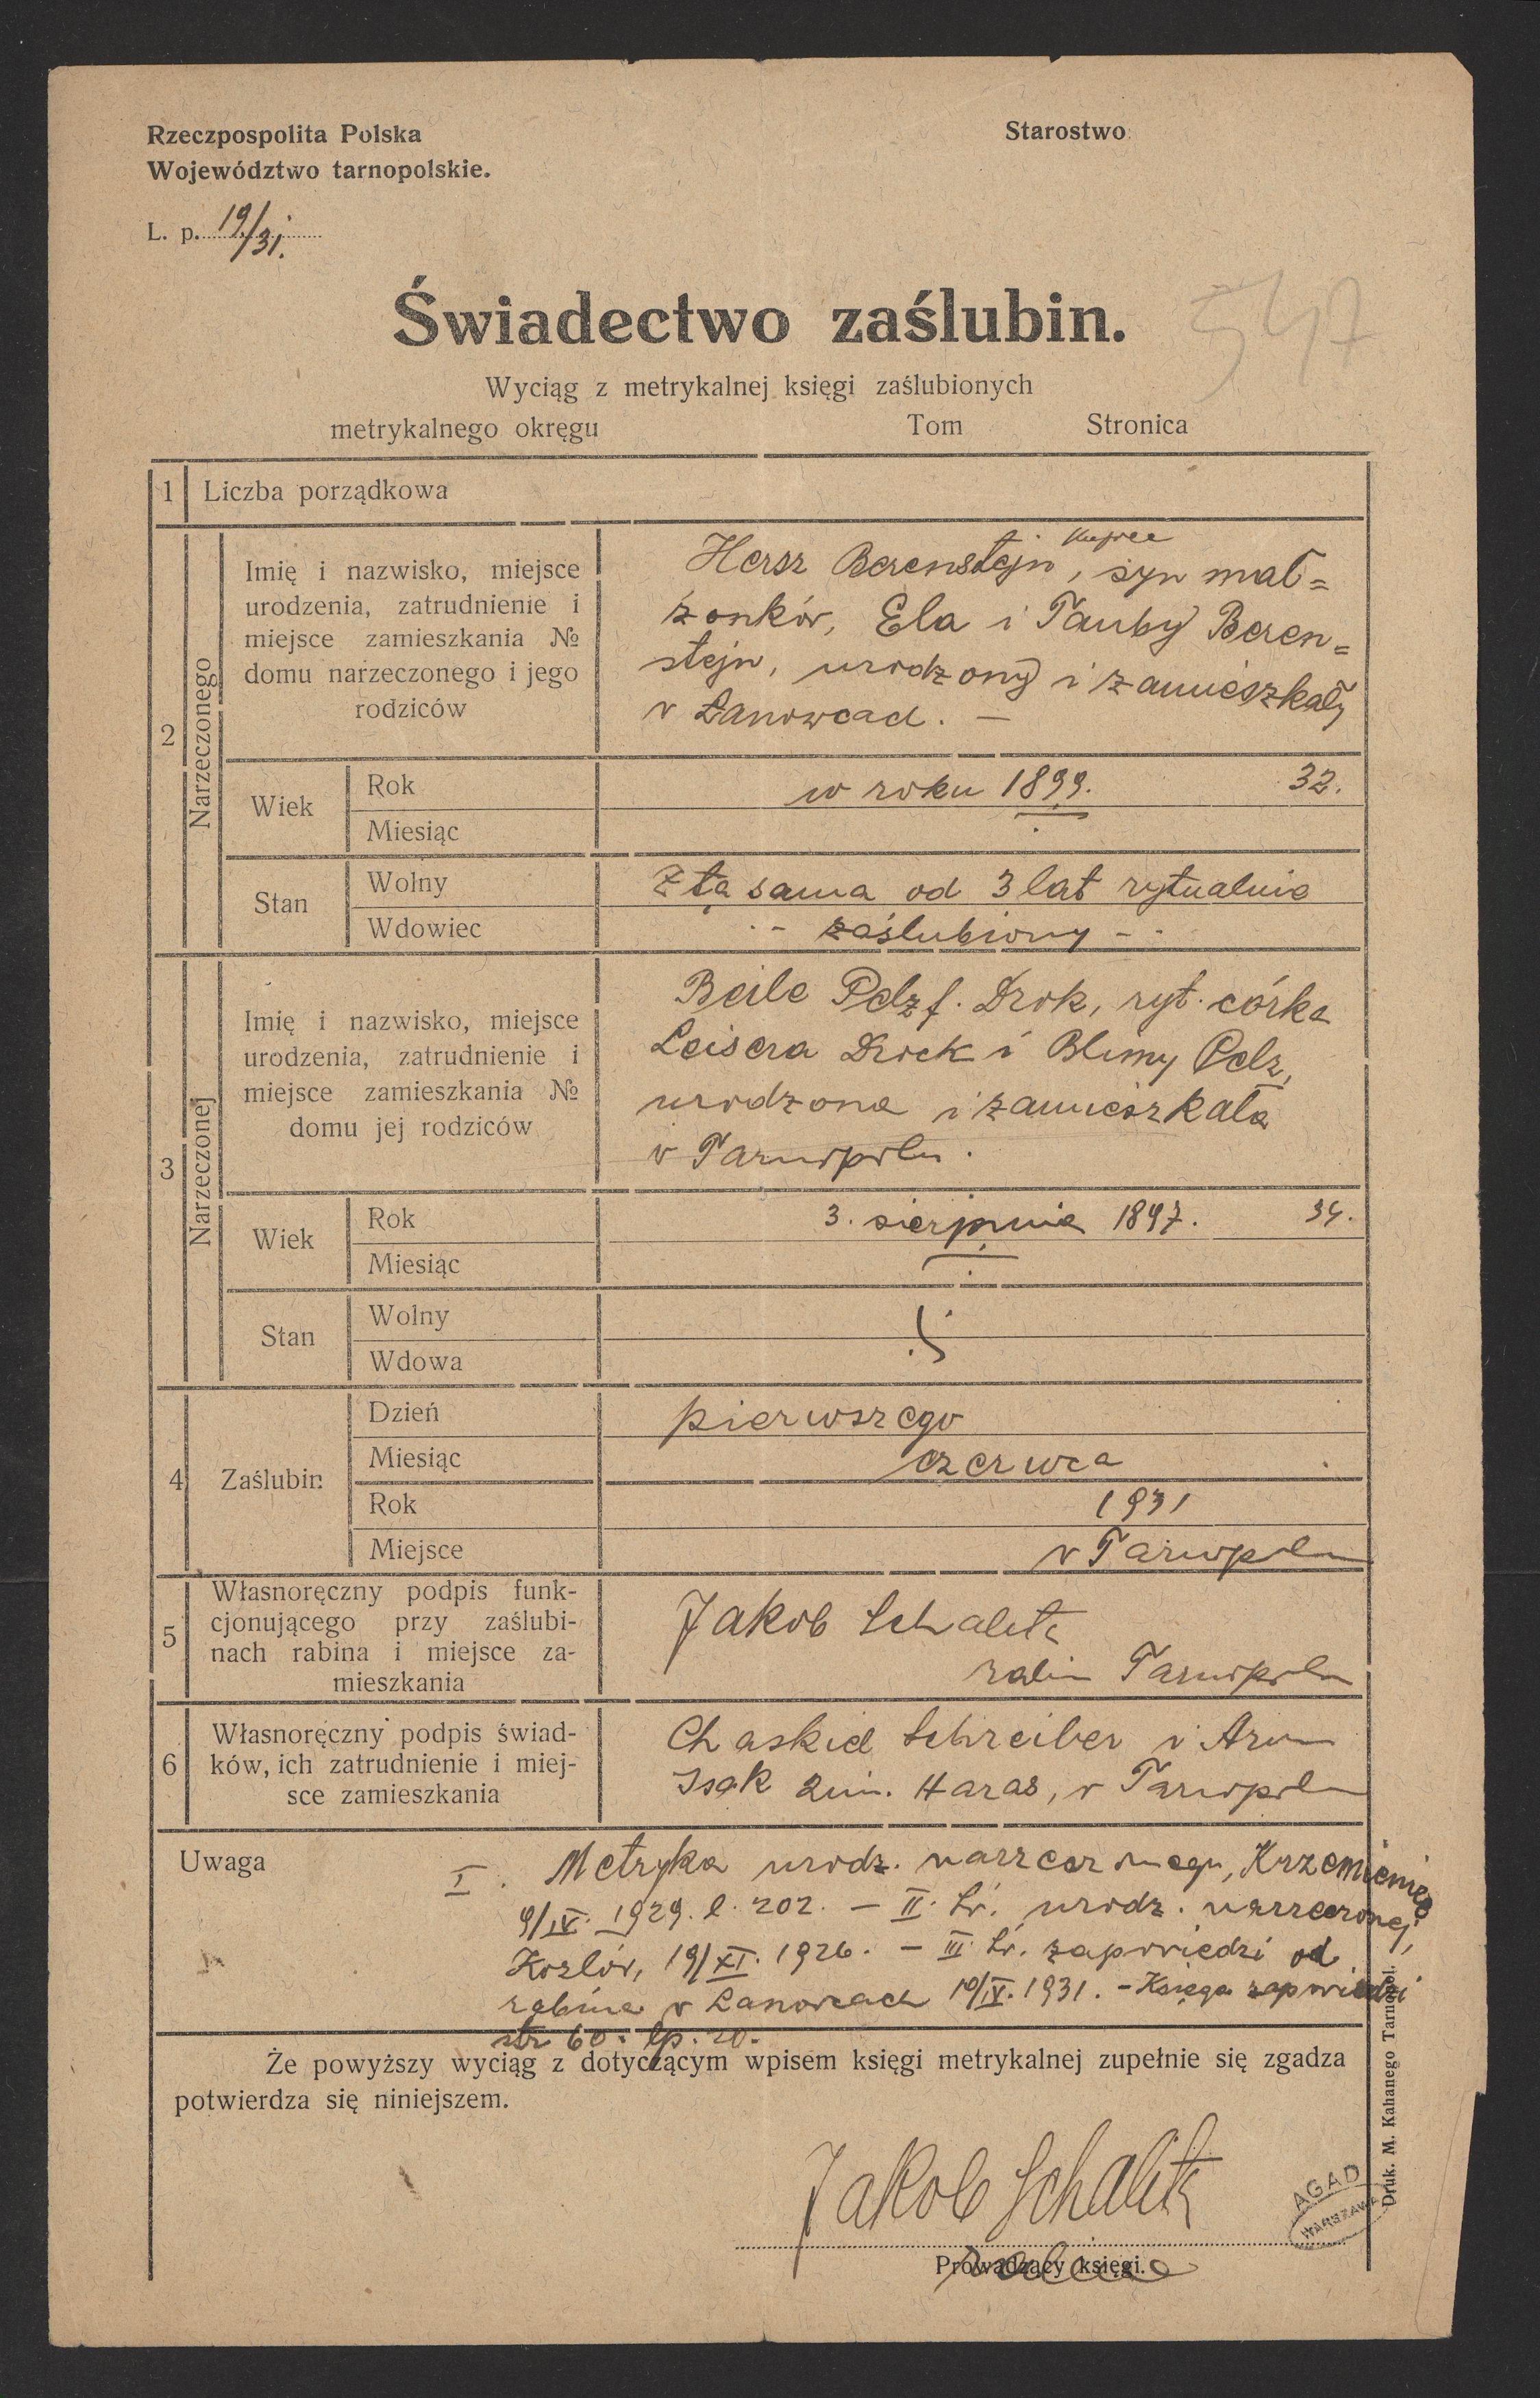 Rzeczpospolita Polska
Województwo tarnopolskie.
Starostwo
L. p. 19/31.
547
Świadectwo zaślubin.
Wyciąg z metrykalnej księgi zaślubionych
metrykalnego okręgu Tom Stronica
1 Liczba porządkowa
2 Narzeczonego
Imię i nazwisko, miejsce
urodzenia, zatrudnienie i
miejsce zamieszkania №
domu narzeczonego i jego
rodziców
kupiec
Hersz Berenstejn, syn mał=
żonków, Ela i Tauby Beren=
stejn, urodzony i zamieszkały
w Łanowcach. —
Wiek Rok w roku 1899. 32.
Miesiąc
Stan Wolny Z tą sama od 3 lat rytualnie
Wdowiec - zaślubiony -
3 Narzeczonej
Imię i nazwisko, miejsce
urodzenia, zatrudnienie i
miejsce zamieszkania №
domu jej rodziców
Beile Pelz f. Drok, ryt. córka
Leisera Drock i Blimy Pelz,
urodzona i zamieszkała
w Tarnopolu.
Wiek Rok 3. sierpnia 1897. 34.
Miesiąc
Stan Wolny
Wdowa
4 Zaślubin
Dzień pierwszego
Miesiąc czerwca
Rok 1931
Miejsce w Tarnopolu
5 Własnoręczny podpis funk-
cjonującego przy zaślubi-
nach rabina i miejsce za-
mieszkania
Jakob Schalita
rabin Tarnopolu
6 Własnoręczny podpis świad-
ków, ich zatrudnienie i miej-
sce zamieszkania
Chaskiel Schreiber i Aron
Isak 2im. Haras, w Tarnopolu
Uwaga
I. Metryka urodz. narzeczonego, Krzemieniec
9/IV. 1929. l. 202. — II. św. urodz. narzeczonej,
Kozłów, 19/XI. 1926. — III. św. zapowiedzi od
rabina w Lanowcach 10/IV. 1931. — Księga zapowiedzi
str 60. lp. 20.
Że powyższy wyciąg z dotyczącym wpisem księgi metrykalnej zupełnie się zgadza
potwierdza się niniejszem.
Jakob Schalita
Prowadzący księgi.
AGAD
WARSZAWA
Druk. M. Kahanego Tarnopol.